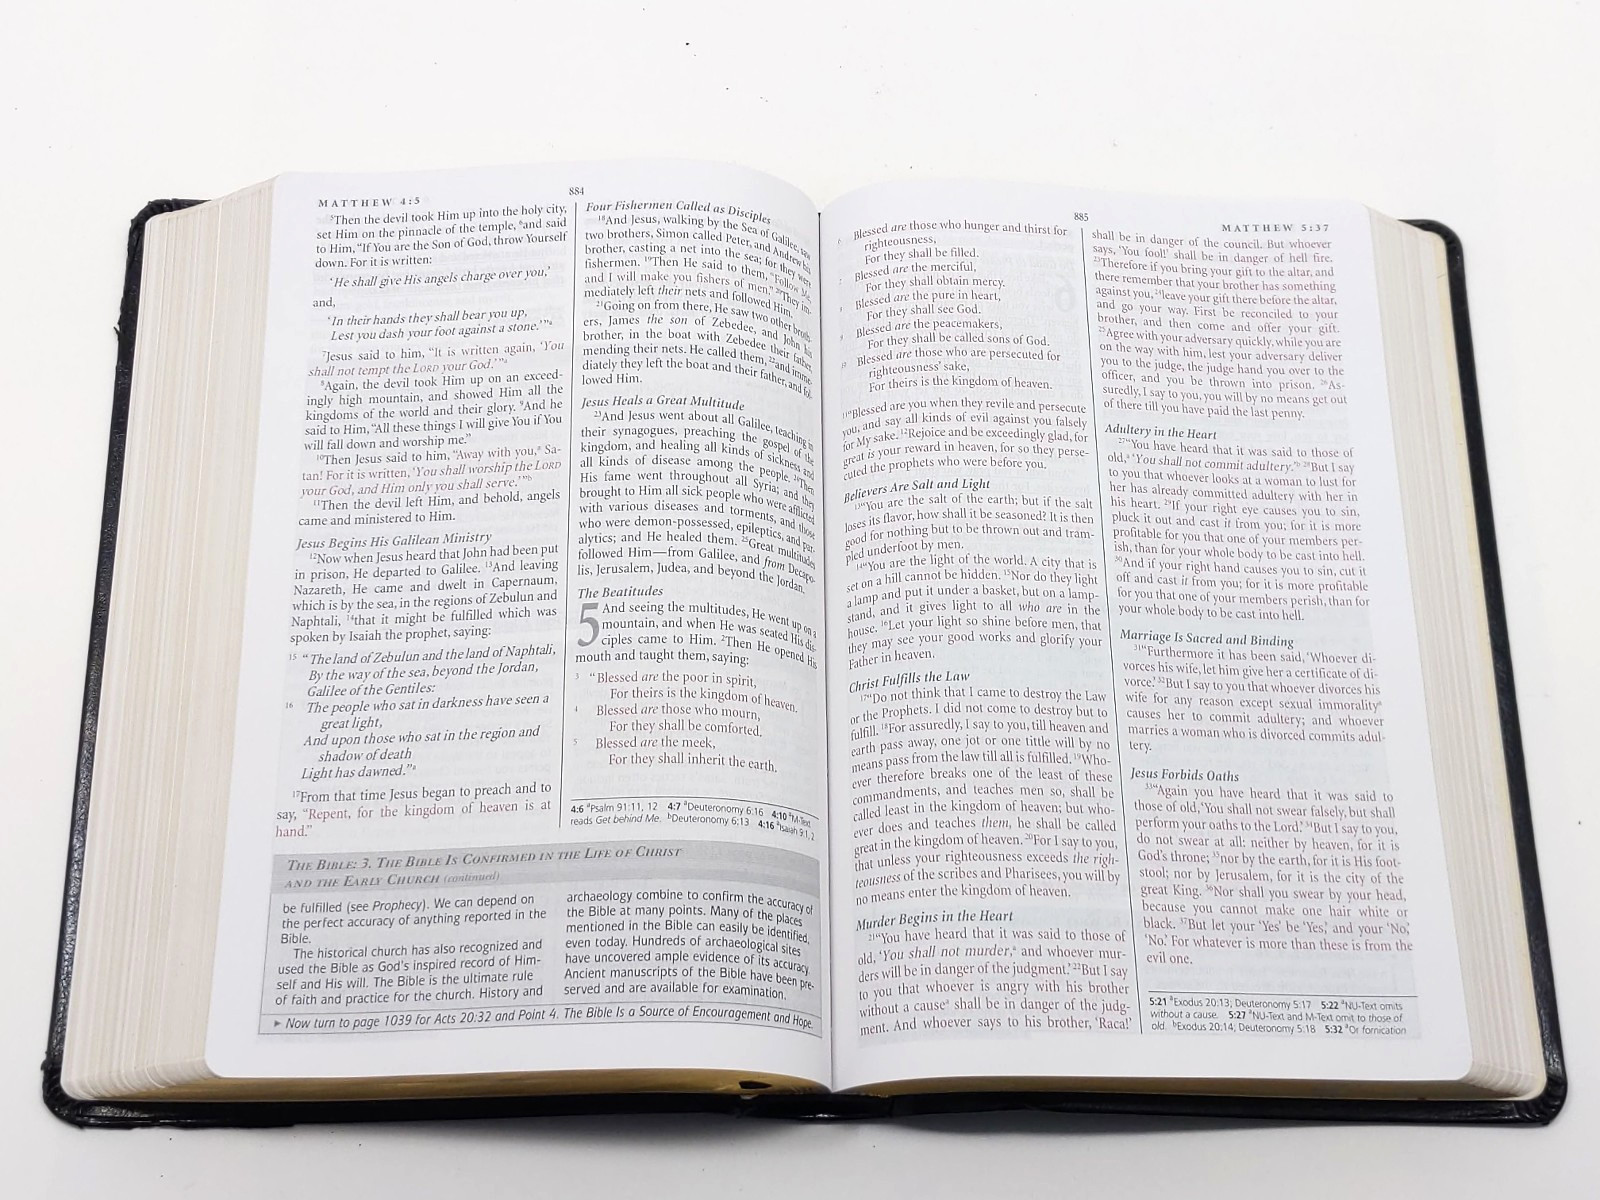 MATTHEW 4:5
884
⁵Then the devil took Him up into the holy city,
set Him on the pinnacle of the temple, ⁶and said
to Him, “If You are the Son of God, throw Yourself
down. For it is written:
‘He shall give His angels charge over you,’
and,
‘In their hands they shall bear you up,
Lest you dash your foot against a stone.’”ᵃ
⁷Jesus said to him, “It is written again, ‘You
shall not tempt the LORD your God.’”ᵃ
⁸Again, the devil took Him up on an exceed-
ingly high mountain, and showed Him all the
kingdoms of the world and their glory. ⁹And he
said to Him, “All these things I will give You if You
will fall down and worship me.”
¹⁰Then Jesus said to him, “Away with you,ᵃ Sa-
tan! For it is written, ‘You shall worship the LORD
your God, and Him only you shall serve.’”ᵇ
¹¹Then the devil left Him, and behold, angels
came and ministered to Him.
Jesus Begins His Galilean Ministry
¹²Now when Jesus heard that John had been put
in prison, He departed to Galilee. ¹³And leaving
Nazareth, He came and dwelt in Capernaum,
which is by the sea, in the regions of Zebulun and
Naphtali, ¹⁴that it might be fulfilled which was
spoken by Isaiah the prophet, saying:
15 “The land of Zebulun and the land of Naphtali,
By the way of the sea, beyond the Jordan,
Galilee of the Gentiles:
16 The people who sat in darkness have seen a
great light,
And upon those who sat in the region and
shadow of death
Light has dawned.”ᵃ
¹⁷From that time Jesus began to preach and to
say, “Repent, for the kingdom of heaven is at
hand.”
Four Fishermen Called as Disciples
¹⁸And Jesus, walking by the Sea of Galilee, saw
two brothers, Simon called Peter, and Andrew his
brother, casting a net into the sea; for they were
fishermen. ¹⁹Then He said to them, “Follow Me,
and I will make you fishers of men.” ²⁰They im-
mediately left their nets and followed Him.
²¹Going on from there, He saw two other broth-
ers, James the son of Zebedee, and John his
brother, in the boat with Zebedee their father,
mending their nets. He called them, ²²and imme-
diately they left the boat and their father, and fol-
lowed Him.
Jesus Heals a Great Multitude
²³And Jesus went about all Galilee, teaching in
their synagogues, preaching the gospel of the
kingdom, and healing all kinds of sickness and
all kinds of disease among the people. ²⁴Then
His fame went throughout all Syria; and they
brought to Him all sick people who were afflicted
with various diseases and torments, and those
who were demon-possessed, epileptics, and par-
alytics; and He healed them. ²⁵Great multitudes
followed Him—from Galilee, and from Decapo-
lis, Jerusalem, Judea, and beyond the Jordan.
The Beatitudes
5 And seeing the multitudes, He went up on a
mountain, and when He was seated His dis-
ciples came to Him. ²Then He opened His
mouth and taught them, saying:
3 “Blessed are the poor in spirit,
For theirs is the kingdom of heaven.
4 Blessed are those who mourn,
For they shall be comforted.
5 Blessed are the meek,
For they shall inherit the earth.
4:6 ᵃPsalm 91:11, 12 4:7 ᵃDeuteronomy 6:16 4:10 ᵃM-Text
reads Get behind Me. ᵇDeuteronomy 6:13 4:16 ᵃIsaiah 9:1, 2
THE BIBLE: 3. THE BIBLE IS CONFIRMED IN THE LIFE OF CHRIST
AND THE EARLY CHURCH (continued)
be fulfilled (see Prophecy). We can depend on
the perfect accuracy of anything reported in the
Bible.
The historical church has also recognized and
used the Bible as God's inspired record of Him-
self and His will. The Bible is the ultimate rule
of faith and practice for the church. History and
archaeology combine to confirm the accuracy of
the Bible at many points. Many of the places
mentioned in the Bible can easily be identified,
even today. Hundreds of archaeological sites
have uncovered ample evidence of its accuracy.
Ancient manuscripts of the Bible have been pre-
served and are available for examination.
► Now turn to page 1039 for Acts 20:32 and Point 4. The Bible Is a Source of Encouragement and Hope.
885
MATTHEW 5:37
6 Blessed are those who hunger and thirst for
righteousness,
For they shall be filled.
7 Blessed are the merciful,
For they shall obtain mercy.
8 Blessed are the pure in heart,
For they shall see God.
9 Blessed are the peacemakers,
For they shall be called sons of God.
10 Blessed are those who are persecuted for
righteousness’ sake,
For theirs is the kingdom of heaven.
¹¹“Blessed are you when they revile and persecute
you, and say all kinds of evil against you falsely
for My sake. ¹²Rejoice and be exceedingly glad, for
great is your reward in heaven, for so they perse-
cuted the prophets who were before you.
Believers Are Salt and Light
¹³“You are the salt of the earth; but if the salt
loses its flavor, how shall it be seasoned? It is then
good for nothing but to be thrown out and tram-
pled underfoot by men.
¹⁴“You are the light of the world. A city that is
set on a hill cannot be hidden. ¹⁵Nor do they light
a lamp and put it under a basket, but on a lamp-
stand, and it gives light to all who are in the
house. ¹⁶Let your light so shine before men, that
they may see your good works and glorify your
Father in heaven.
Christ Fulfills the Law
¹⁷“Do not think that I came to destroy the Law
or the Prophets. I did not come to destroy but to
fulfill. ¹⁸For assuredly, I say to you, till heaven and
earth pass away, one jot or one tittle will by no
means pass from the law till all is fulfilled. ¹⁹Who-
ever therefore breaks one of the least of these
commandments, and teaches men so, shall be
called least in the kingdom of heaven; but who-
ever does and teaches them, he shall be called
great in the kingdom of heaven. ²⁰For I say to you,
that unless your righteousness exceeds the righ-
teousness of the scribes and Pharisees, you will by
no means enter the kingdom of heaven.
Murder Begins in the Heart
²¹“You have heard that it was said to those of
old, ‘You shall not murder,ᵃ and whoever mur-
ders will be in danger of the judgment.’ ²²But I say
to you that whoever is angry with his brother
without a causeᵃ shall be in danger of the judg-
ment. And whoever says to his brother, ‘Raca!’
shall be in danger of the council. But whoever
says, ‘You fool!’ shall be in danger of hell fire.
²³Therefore if you bring your gift to the altar, and
there remember that your brother has something
against you, ²⁴leave your gift there before the altar,
and go your way. First be reconciled to your
brother, and then come and offer your gift.
²⁵Agree with your adversary quickly, while you are
on the way with him, lest your adversary deliver
you to the judge, the judge hand you over to the
officer, and you be thrown into prison. ²⁶As-
suredly, I say to you, you will by no means get out
of there till you have paid the last penny.
Adultery in the Heart
²⁷“You have heard that it was said to those of
old,ᵃ ‘You shall not commit adultery.’ᵇ ²⁸But I say
to you that whoever looks at a woman to lust for
her has already committed adultery with her in
his heart. ²⁹If your right eye causes you to sin,
pluck it out and cast it from you; for it is more
profitable for you that one of your members per-
ish, than for your whole body to be cast into hell.
³⁰And if your right hand causes you to sin, cut it
off and cast it from you; for it is more profitable
for you that one of your members perish, than for
your whole body to be cast into hell.
Marriage Is Sacred and Binding
³¹“Furthermore it has been said, ‘Whoever di-
vorces his wife, let him give her a certificate of di-
vorce.’ ³²But I say to you that whoever divorces his
wife for any reason except sexual immoralityᵃ
causes her to commit adultery; and whoever
marries a woman who is divorced commits adul-
tery.
Jesus Forbids Oaths
³³“Again you have heard that it was said to
those of old, ‘You shall not swear falsely, but shall
perform your oaths to the Lord.’ ³⁴But I say to you,
do not swear at all: neither by heaven, for it is
God’s throne; ³⁵nor by the earth, for it is His foot-
stool; nor by Jerusalem, for it is the city of the
great King. ³⁶Nor shall you swear by your head,
because you cannot make one hair white or
black. ³⁷But let your ‘Yes’ be ‘Yes,’ and your ‘No,’
‘No.’ For whatever is more than these is from the
evil one.
5:21 ᵃExodus 20:13; Deuteronomy 5:17 5:22 ᵃNU-Text omits
without a cause. 5:27 ᵃNU-Text and M-Text omit to those of
old. ᵇExodus 20:14; Deuteronomy 5:18 5:32 ᵃOr fornication